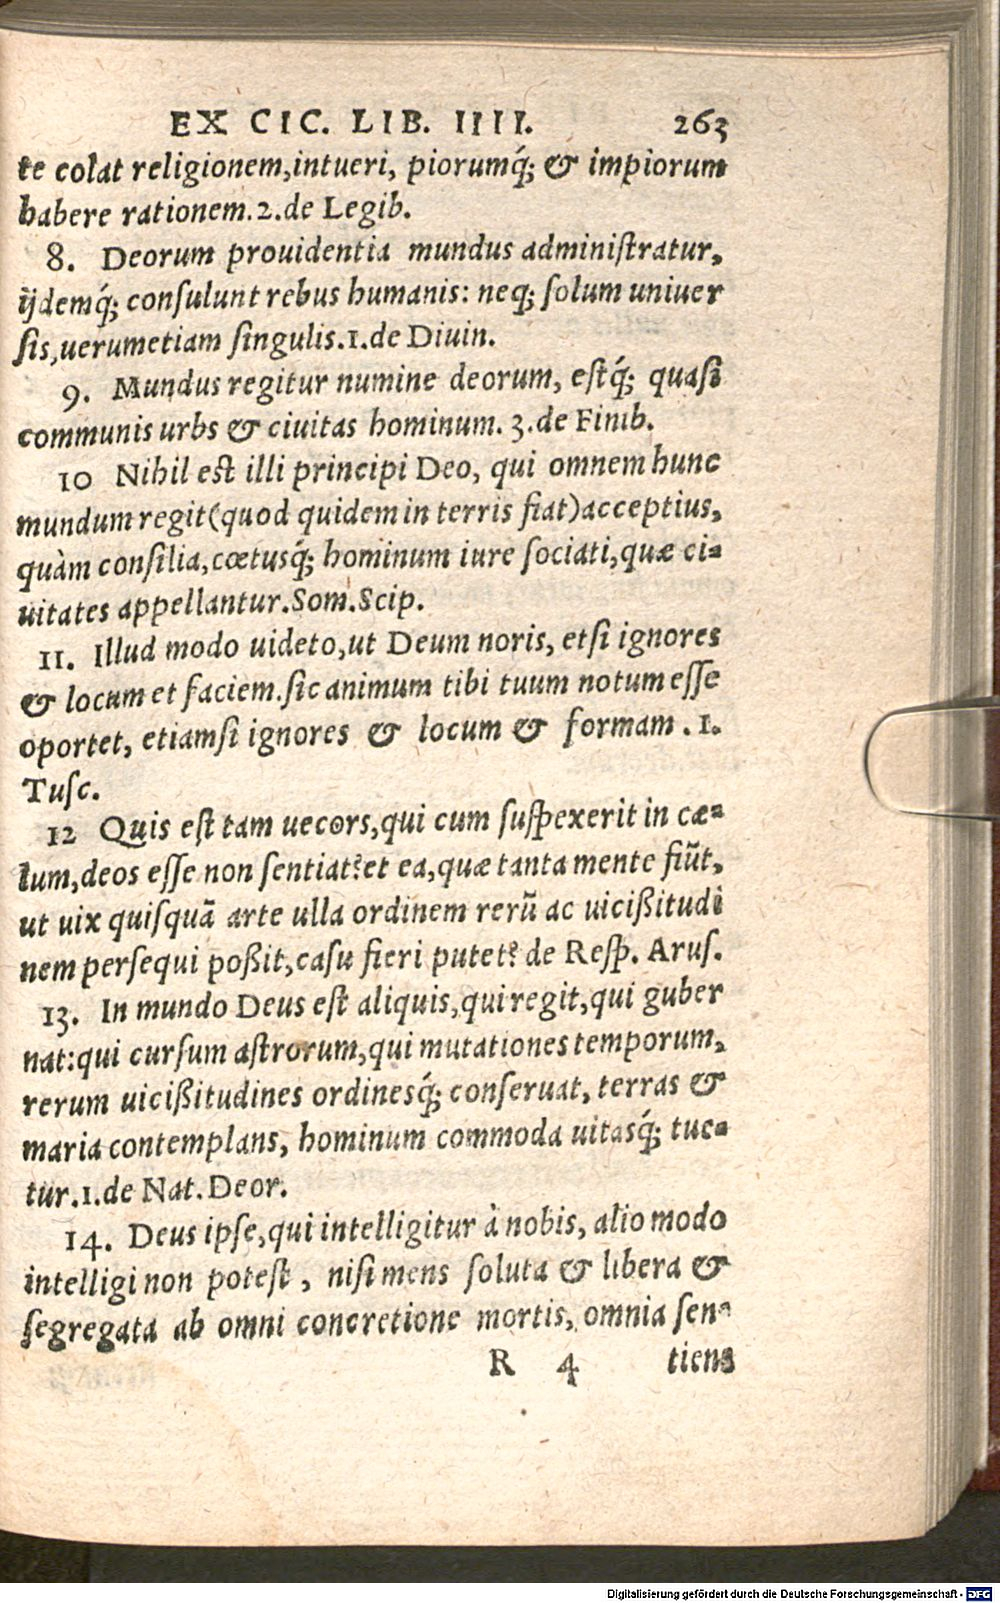 EX CIC. LIB. IIII. 263
te colat religionem,intueri, piorumq́; & impiorum
habere rationem.2.de Legib.
8. Deorum prouidentia mundus administratur,
ijdemq́; consulunt rebus humanis: neq; solum uniuer
sis,uerumetiam singulis.1.de Diuin.
9. Mundus regitur numine deorum, estq́; quasi
communis urbs & ciuitas hominum. 3.de Finib.
10 Nihil est illi principi Deo, qui omnem hunc
mundum regit(quod quidem in terris fiat)acceptius,
quàm consilia,cœtusq́; hominum iure sociati,quæ ci-
uitates appellantur.Som.Scip.
11. Illud modo uideto,ut Deum noris, etsi ignores
& locum et faciem.sic animum tibi tuum notum esse
oportet, etiamsi ignores & locum & formam .1.
Tusc.
12 Quis est tam uecors,qui cum suspexerit in cæ-
lum,deos esse non sentiat?et ea,quæ tanta mente fiũt,
ut uix quisquã arte ulla ordinem rerũ ac uicißitudi
nem persequi poßit,casu fieri putet? de Resp. Arus.
13. In mundo Deus est aliquis,qui regit,qui guber
nat:qui cursum astrorum,qui mutationes temporum,
rerum uicißitudines ordinesq́; conseruat, terras &
maria contemplans, hominum commoda uitasq́; tue-
tur.1.de Nat.Deor.
14. Deus ipse,qui intelligitur à nobis, alio modo
intelligi non potest , nisi mens soluta & libera &
segregata ab omni concretione mortis, omnia sen-
R 4 tiens
Digitalisierung gefördert durch die Deutsche Forschungsgemeinschaft - DFG